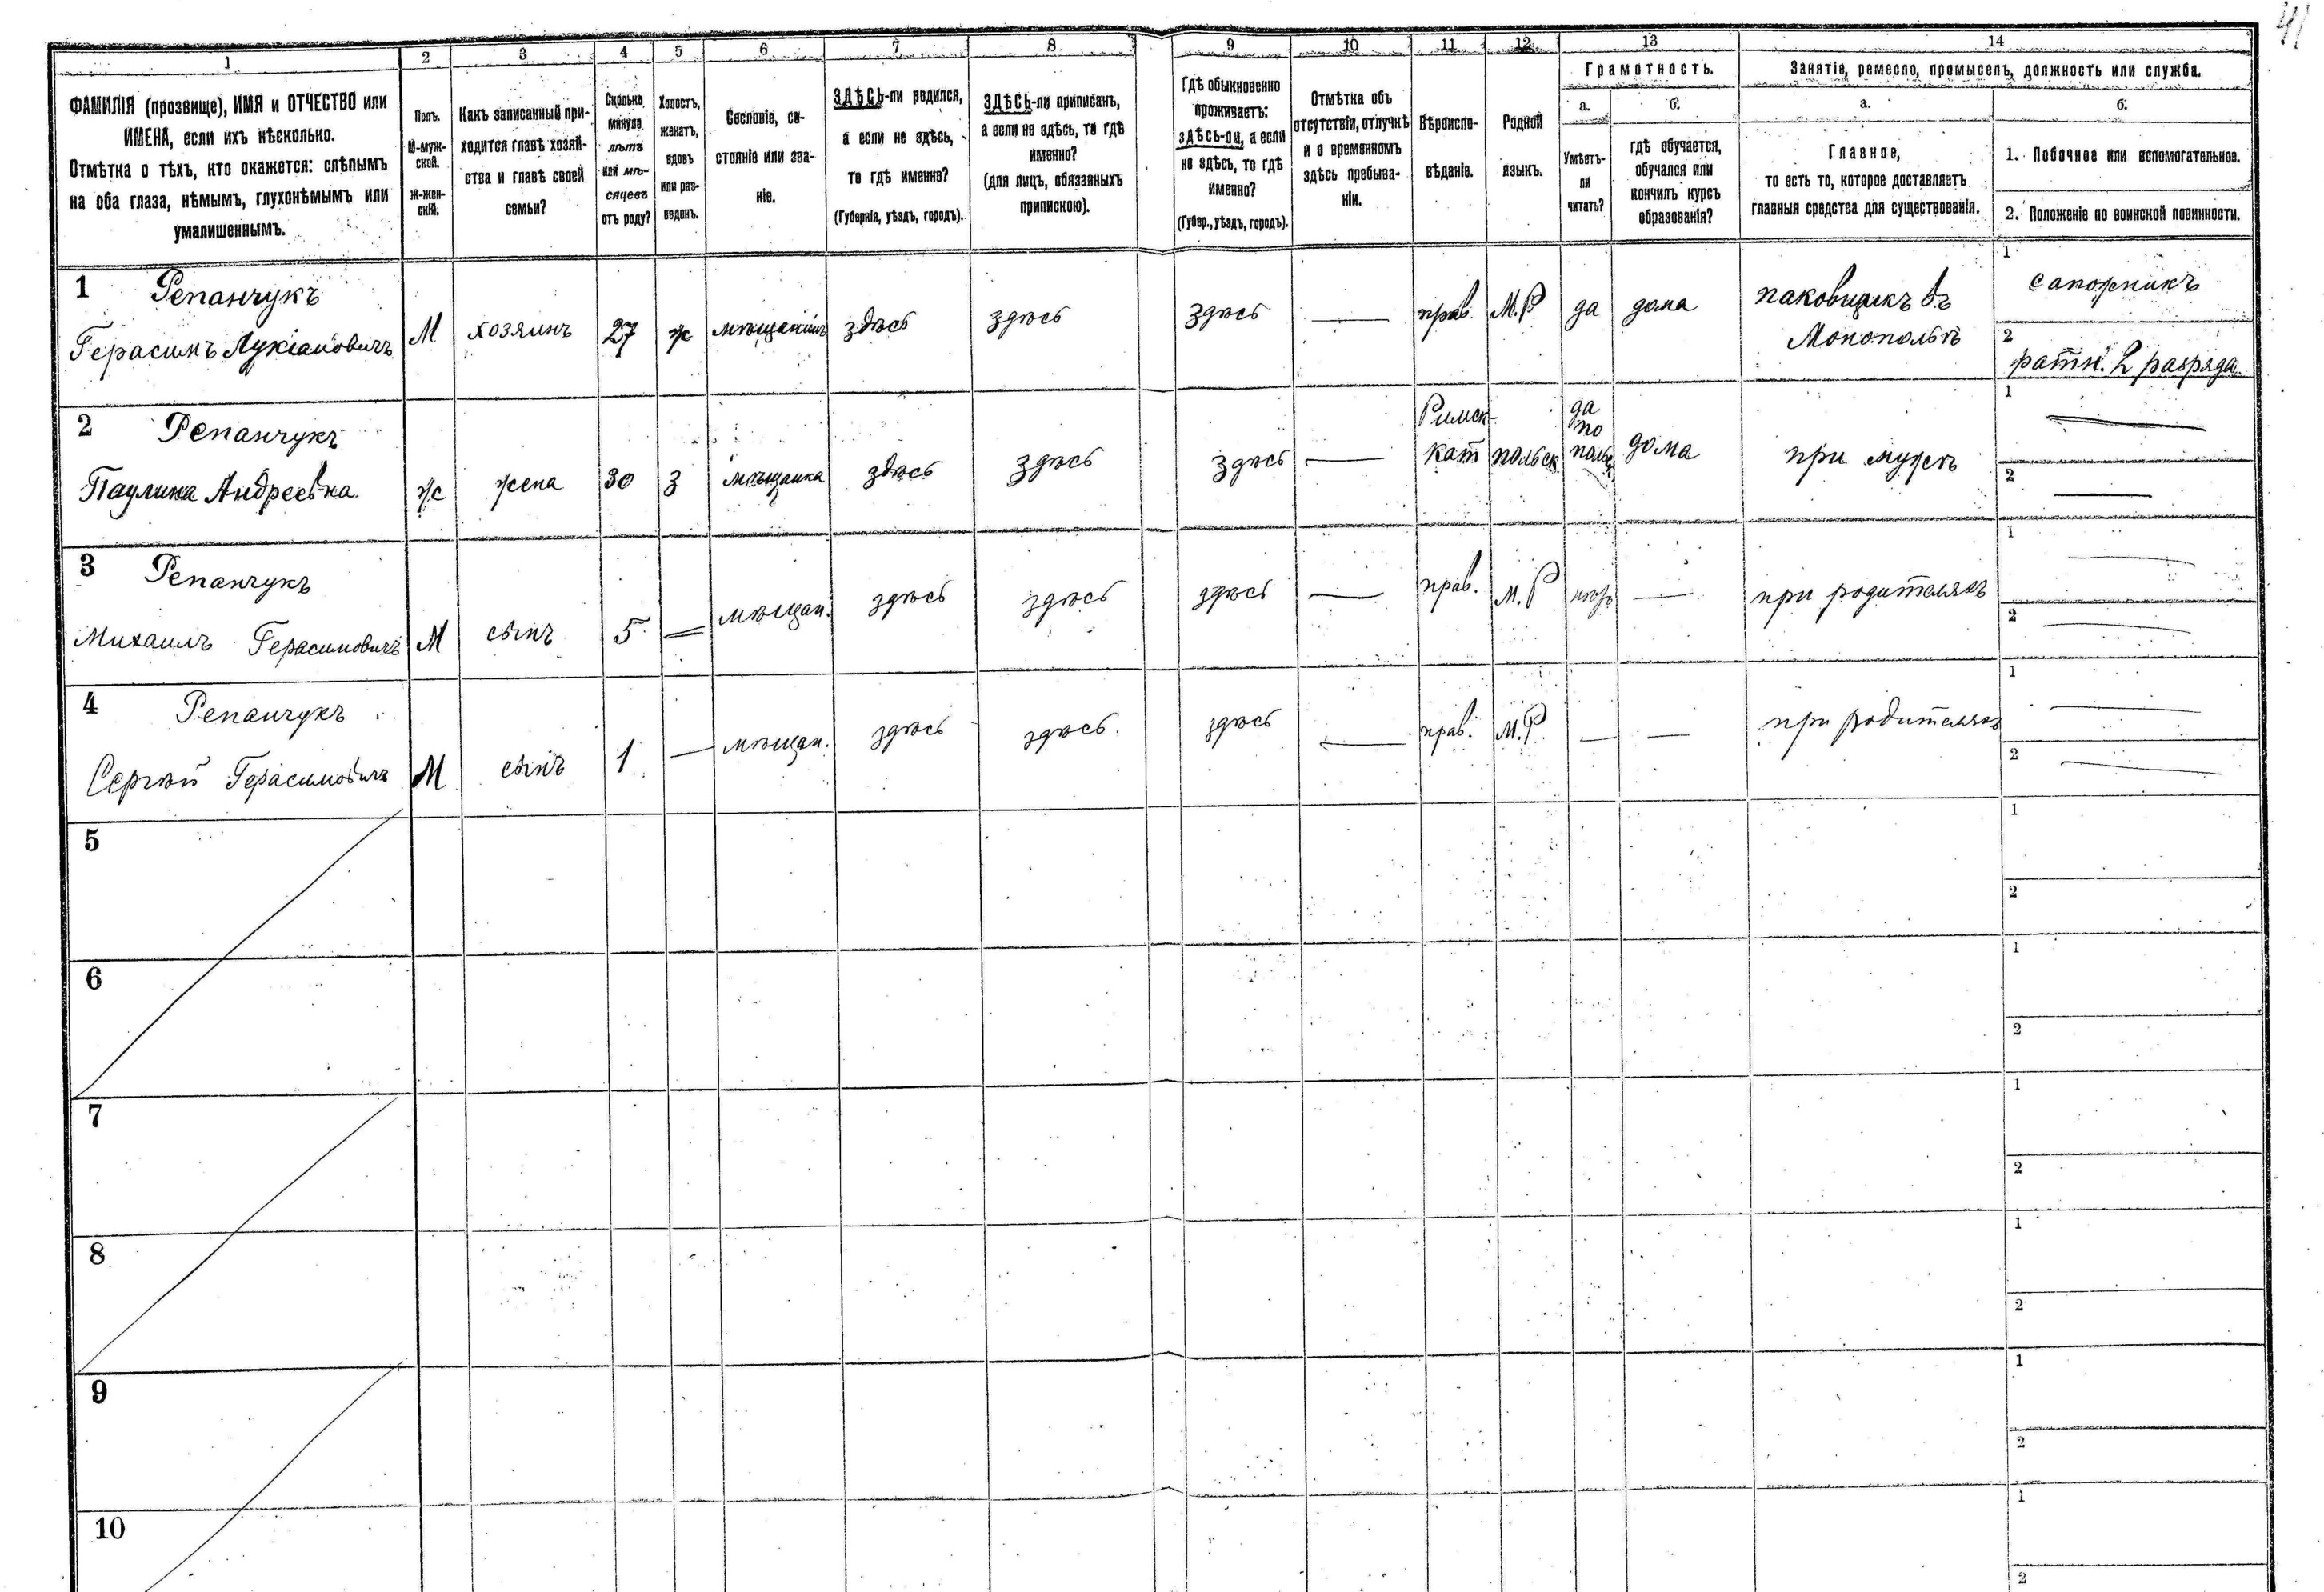 41
1 2 3 4 5 6 7 8 9 10 11 12 13 14
ФАМИЛІЯ (прозвище), ИМЯ и ОТЧЕСТВО или
ИМЕНА, если ихъ нѣсколько.
Отмѣтка о тѣхъ, кто окажется: слѣпымъ
на оба глаза, нѣмымъ, глухонѣмымъ или
умалишеннымъ.
Полъ.
М-муж-
ской.
Ж-жен-
скій.
Какъ записанный при-
ходится главѣ хозяй-
ства и главѣ своей
семьи?
Сколько
минуло
лѣтъ
или мѣ-
сяцевъ
отъ роду?
Холостъ,
женатъ,
вдовъ
или раз-
веденъ.
Сословіе, со-
стояніе или зва-
ніе.
ЗДѢСЬ-ли родился,
а если не здѣсь,
то гдѣ именно?
(Губернія, уѣздъ, городъ).
ЗДѢСЬ-ли приписанъ,
а если не здѣсь, то гдѣ
именно?
(для лицъ, обязанныхъ
припискою).
Гдѣ обыкновенно
проживаетъ:
здѣсь-ли, а если
не здѣсь, то гдѣ
именно?
(Губер., уѣздъ, городъ).
Отмѣтка объ
отсутствіи, отлучкѣ
и о временномъ
здѣсь пребыва-
ніи.
Вѣроиспо-
вѣданіе.
Родной
языкъ.
Грамотность.
а.
Умѣетъ-
ли
читать?
б.
гдѣ обучается,
обучался или
кончилъ курсъ
образованія?
Занятіе, ремесло, промыселъ, должность или служба.
а.
Главное,
то есть то, которое доставляетъ
главныя средства для существованія.
б.
1. Побочное или вспомогательное.
2. Положеніе по воинской повинности.
1 Репанчукъ
Герасимъ Лукіановичъ
М хозяинъ 27 ж мѣщанинъ здѣсь здѣсь здѣсь — прав. М.Р да дома
паковщикъ въ
Монополѣ
1 сапожникъ
2 ратн. 2 разряда.
2 Репанчукъ
Паулина Андреевна
ж жена 30 З мѣщанка здѣсь здѣсь здѣсь —
Римск-
кат польск
да
по
польс
дома при мужѣ
1 —
2 —
3 Репанчукъ
Михаилъ Герасимовичъ
М сынъ 5 — мѣщан. здѣсь здѣсь здѣсь — прав. М.Р — при родителяхъ
1 —
2 —
4 Репанчукъ
Сергѣй Герасимовичъ
М сынъ 1 — мѣщан. здѣсь здѣсь здѣсь — прав. М.Р. — — при родителяхъ
1 —
2 —
5
1
2
6
1
2
7
1
2
8
1
2
9
1
2
10
1
2